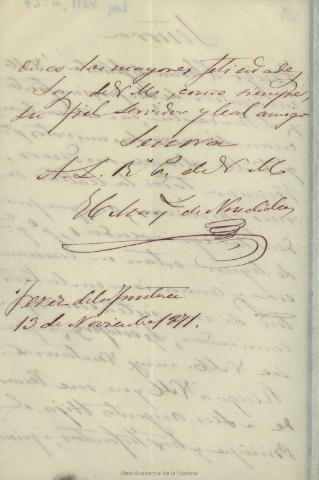 las mayores felicidades
Soy de V.M., como siempre,
su fiel servidor y leal amigo
Señora
A. L. R. P. de V. M.
El Marq. de Novaliches
Jerez de la Frontera
13 de Noviembre 1871.
Real Academia de la Historia